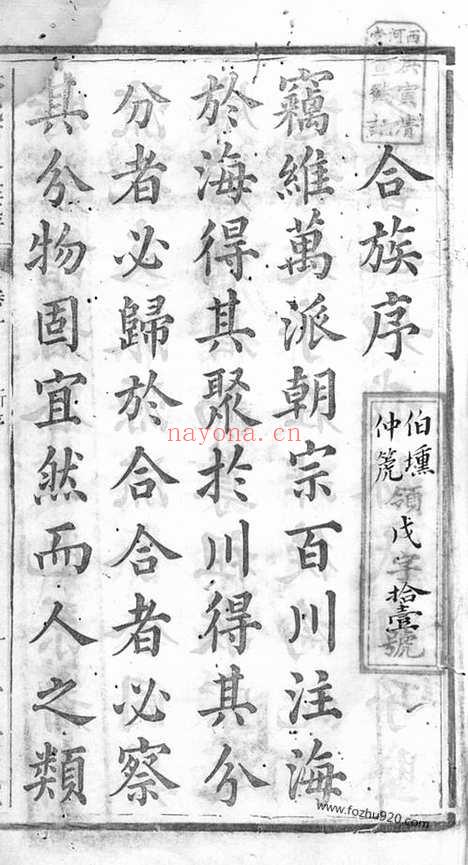 合族序
伯壎
仲箎
領戊字拾壹號
竊維萬派朝宗百川注海
於海得其聚於川得其分
分者必歸於合合者必察
其分物固宜然而人之類
nayona.cn
www.fozhu920.com